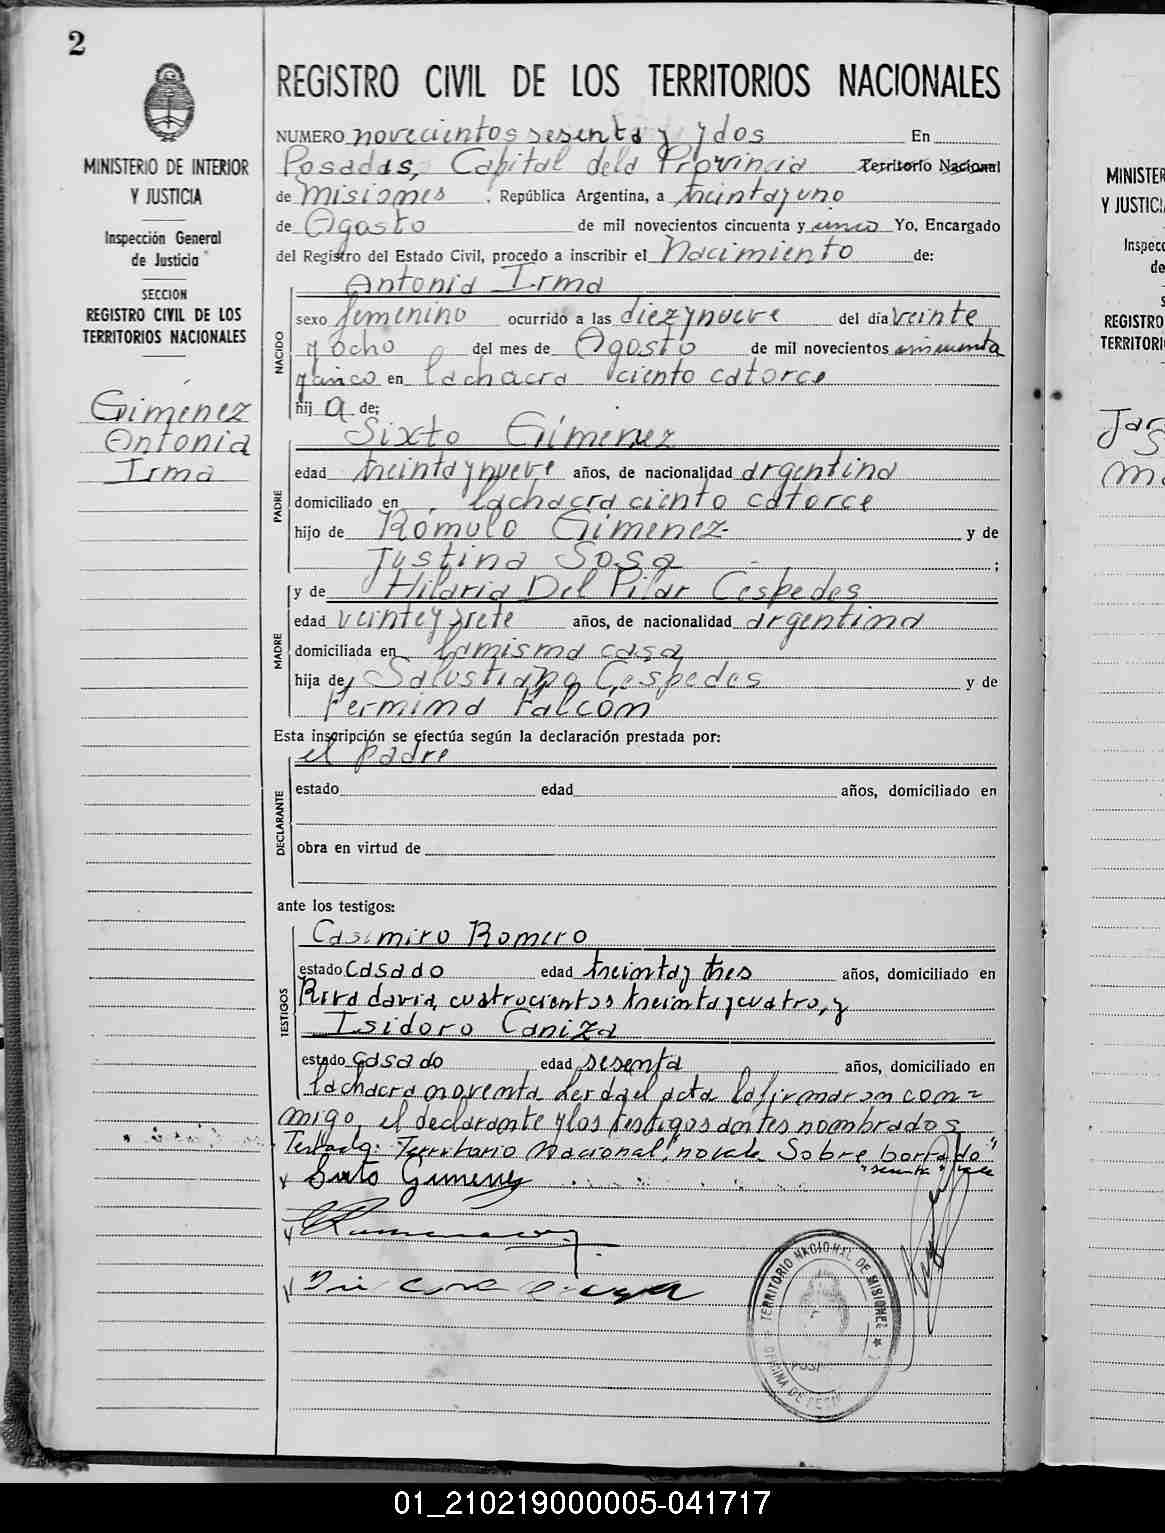 2
MINISTERIO DE INTERIOR
Y JUSTICIA
Inspección General
de Justicia
SECCION
REGISTRO CIVIL DE LOS
TERRITORIOS NACIONALES
Gimenez
Antonia
Irma
REGISTRO CIVIL DE LOS TERRITORIOS NACIONALES
NUMERO novecientos sesenta y dos En
Posadas, Capital dela Provincia Territorio Nacional
de Misiones, República Argentina, a treinta y uno
de Agosto de mil novecientos cincuenta y cinco Yo, Encargado
del Registro del Estado Civil, procedo a inscribir el Nacimiento de:
NACIDO
Antonia Irma
sexo femenino ocurrido a las diez y nueve del día veinte
y ocho del mes de Agosto de mil novecientos cincuenta
y cinco en la chacra ciento catorce
hij a de:
PADRE
Sixto Gimenez
edad treinta y nueve años, de nacionalidad argentina
domiciliado en la chacra ciento catorce
hijo de Rómulo Gimenez y de
Justina Sosa ;
MADRE
y de Hilaria Del Pilar Cespedes
edad veinte y siete años, de nacionalidad argentina
domiciliada en la misma casa
hija de Salustiano Cespedes y de
Fermina Falcón
Esta inscripción se efectúa según la declaración prestada por:
el padre
DECLARANTE
estado edad años, domiciliado en
obra en virtud de
ante los testigos:
TESTIGOS
Casimiro Romero
estado casado edad treinta y tres años, domiciliado en
Rivadavia cuatrocientos treinta y cuatro, y
Isidoro Caniza
estado casado edad sesenta años, domiciliado en
la chacra noventa Leida el acta la firmaron con=
migo, el declarante y los testigos antes nombrados
Testado: "Territorio Nacional", no vale Sobre borrado
"sesenta" vale
Sixto Gimenez
TERRITORIO NACIONAL DE MISIONES
Jar
MINISTER
Y JUSTICI
Inspecc
de
S
REGISTRO
TERRITORI
01_210219000005-041717